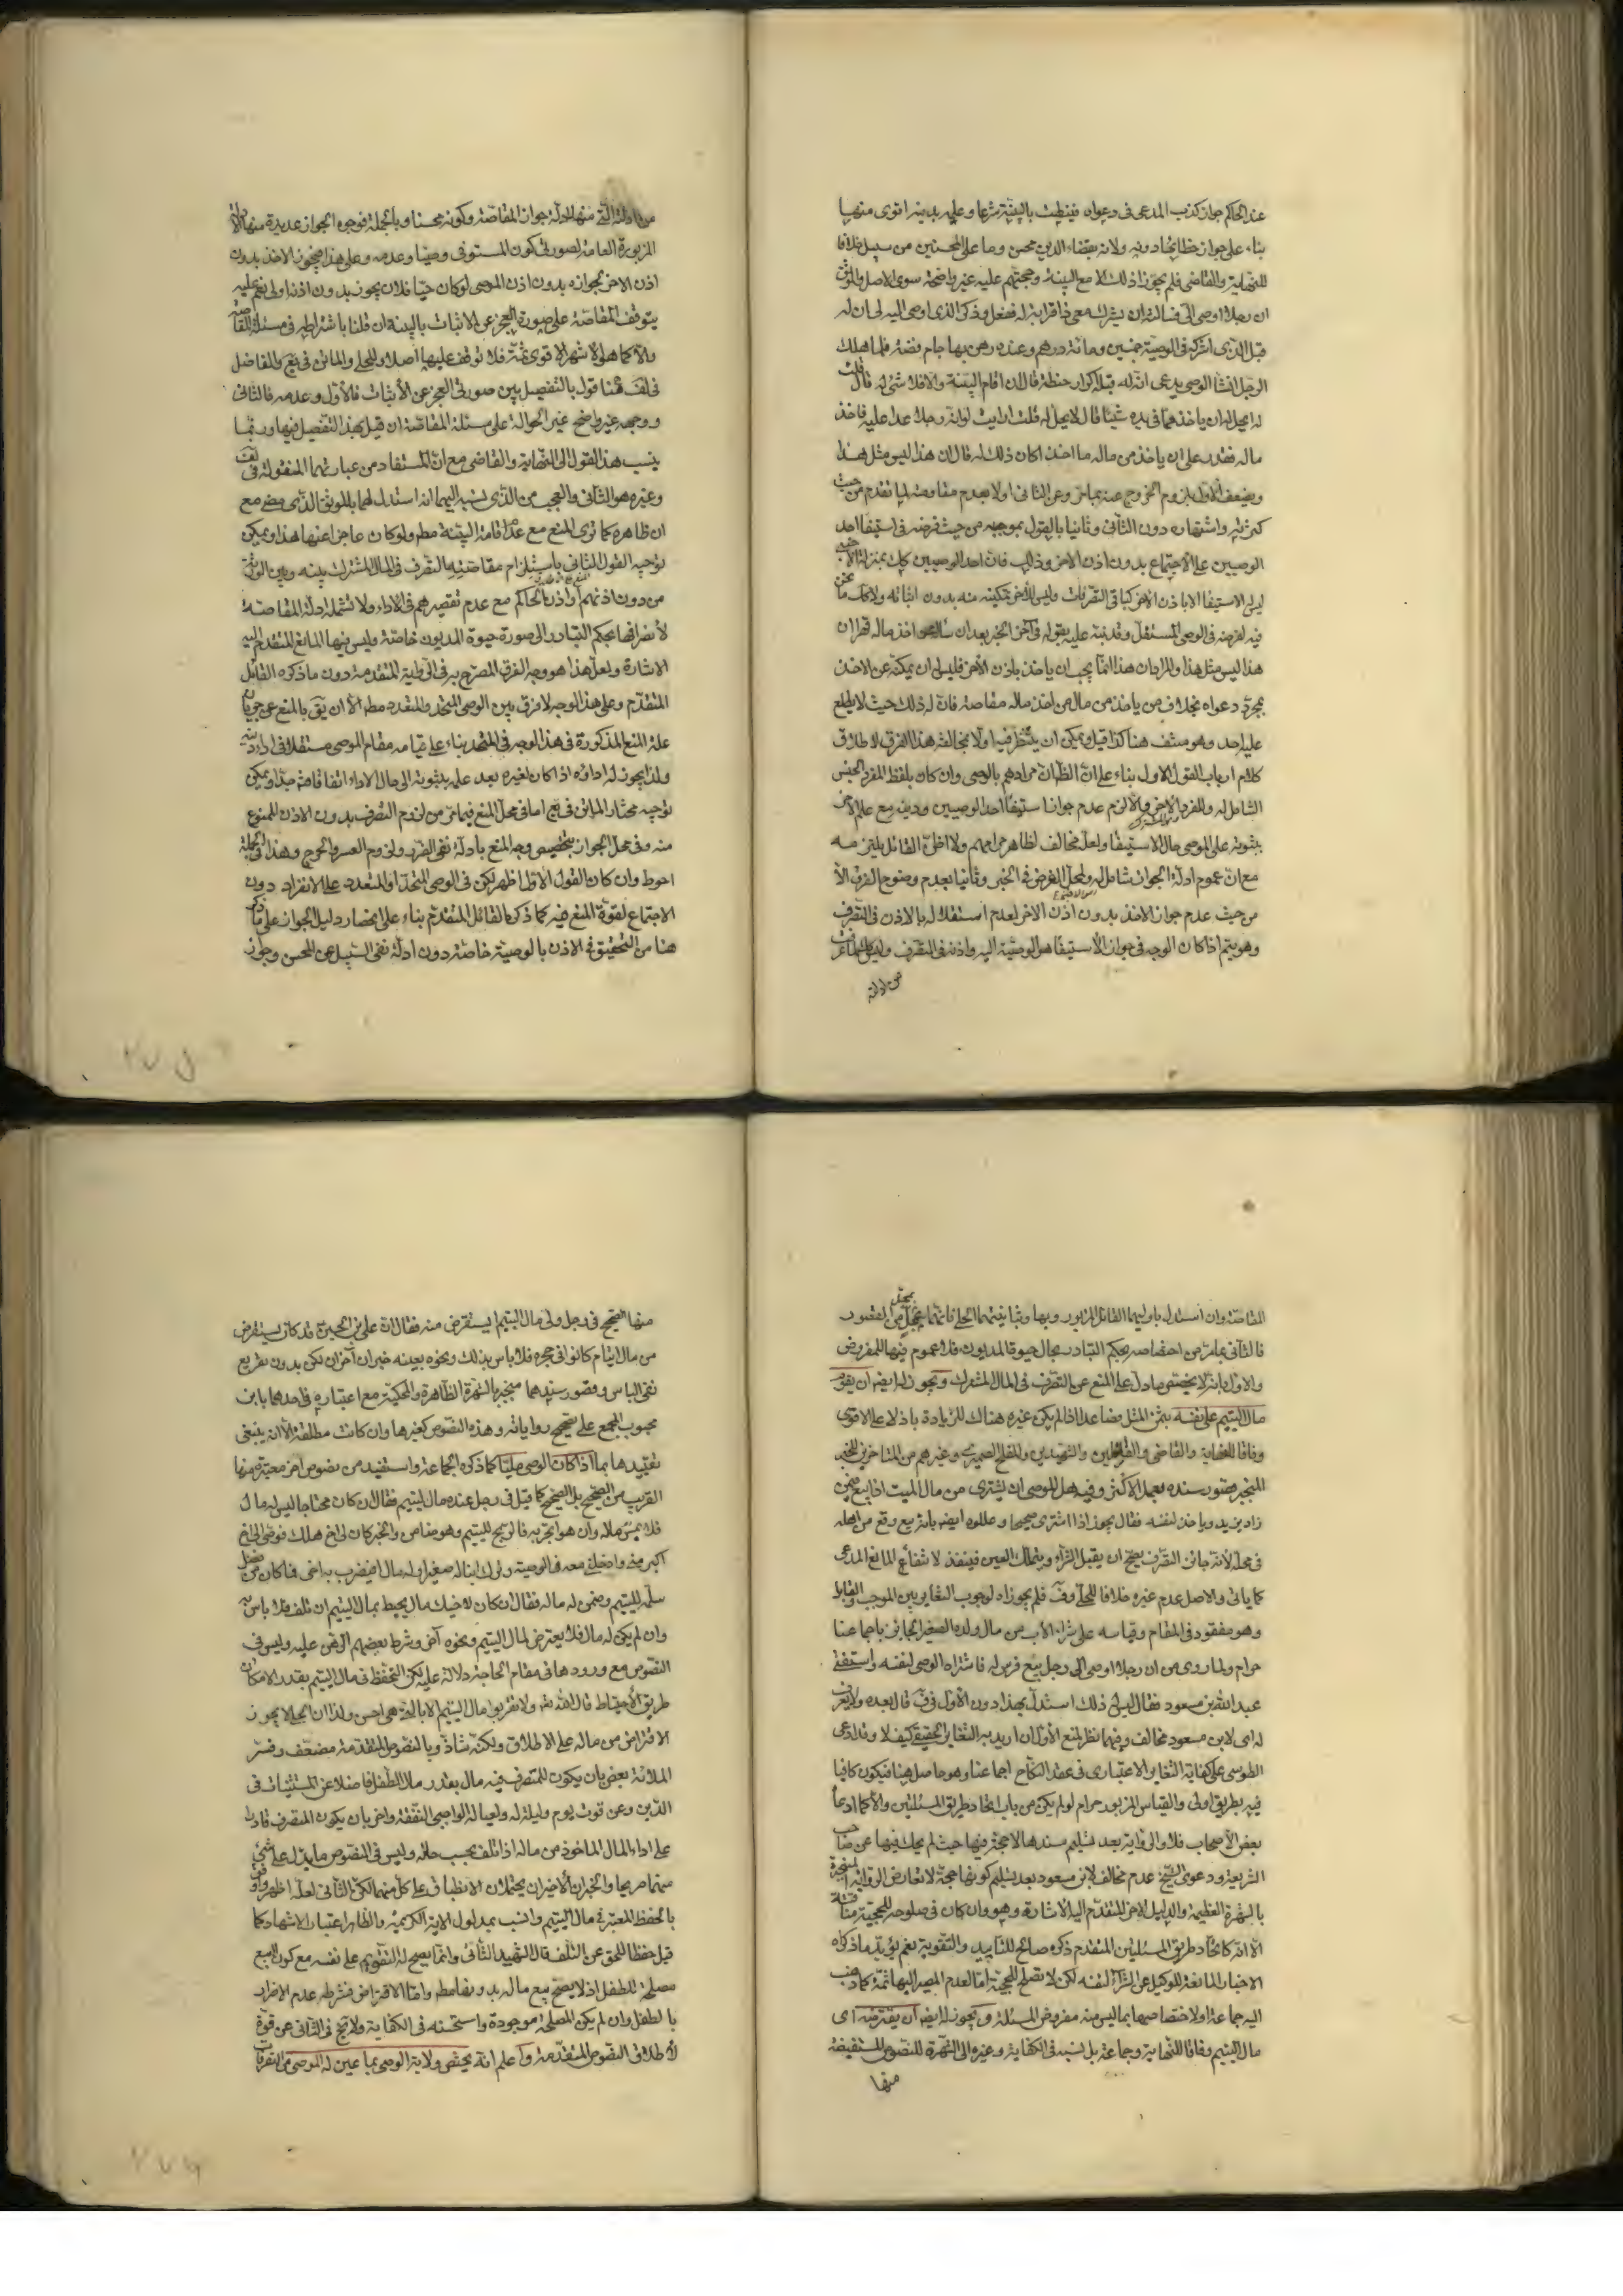 عند الحاكم جواز كذب المدعى فى دعواه فينيطت بالبينة شرعا وعليه بدينه اقوى منها
بناء على جواز حظا بخا دونه ولانه بقضاء الدين محسن وما على المحسنين من سبيل خلافا
للنهاية والقاضى فلم يجوزا ذلك الا مع البينة وحجتهم عليه غير واضحة سوى الاصل والموثق
ان رجلا اوصى الى فسالته ان يشرك معى ذا قرابة له ففعل وذكر الذى اوصى اليه لى ان له
قبل الذى اشركه فى الوصية خمسين ومائة درهم وعنده رهن بها جام فضة فلما هلك
الرجل انشا الوصى يدعى ان له قبله اكرار حنطة قال ان اقام البينة والا فلا شئ له قال قلت
له ايحل له ان ياخذ مما فى يده شيئا قال لا يحل له قلت ارايت لو ان رجلا عدا عليه فاخذ
ماله فقدر على ان ياخذ من ماله ما اخذ اكان ذلك له قال ان هذا ليس مثل هذا
ويضعف الاول بلزوم الخروج عنه بما مر وعن الثانى اولا بعدم مقاومته لما تقدم من حيث
كثرته واشتهاره دون الثانى وثانيا بالقول بموجبه من حيث فرضه فى استيفا احد
الوصيين على الاجتماع بدون اذن الاخر وذلك فان احد الوصيين كك بمنزلة الاجنبى
ليس له الاستيفا الا باذن الاخر كباقى التصرفات وليس للاخر تمكينه منه بدون اثباته ولا كك ما نحن
فيه لفرضه فى الوصى المستقل وقد نبه عليه بقوله فى آخر الخبر بعد ان ساله اخذ ماله قهرا ان
هذا ليس مثل هذا والمراد ان هذا انما يجب ان ياخذ باذن الاخر فليس له ان يمكنه عن الاخذ
بمجرد دعواه بخلاف من ياخذ من مال من اخذ ماله مقاصة فان له ذلك حيث لا يطلع
عليه احد وهو منتف هنا كذا قيل ويمكن ان يتنظر فيه اولا بمخالفة هذا الفرق لاطلاق
كلام ارباب القول الاول بناء على ان الظ ان مرادهم بالوصى وان كان بلفظ المفرد الجنس
الشامل له وللفرد الاخر والا لزم عدم جواز استيفا احد الوصيين ودينه مع علم الاخر
بثبوته على الموصى حال الاستيفا ولعله مخالف لظاهر مرامهم ولا اظن القائل يلتزمه
مع ان عموم ادلة الجواز شامل له ولمحل الفرض فى الخبر وثانيا بعدم وضوح الفرق الا
من حيث عدم جواز الاخذ بدون اذن الاخر لعدم استقلاله بالاذن فى التصرف
وهو يتم اذا كان الوجه فى جواز الاستيفا هو الوصية اليه واذنه فى التصرف وليس كك لما مر
من ادلة
من ادلته التى منها ادلة جواز المقاصة وكونه محسنا وبالجملة فوجوه الجواز عديدة منها الادلة
المزبورة العامة لصورتى كون المستوفى وصيا وعدمه وعلى هذا فيجوز الاخذ بدون
اذن الاخر لجوازه بدون اذن الموصى لو كان حيا فلان يجوز بدون اذنه اولى نعم عليه
يتوقف المقاصة على صورة العجز عن الاثبات بالبينة ان قلنا باشتراطه فى مسئلة المقاصة
والا كما هو الاشهر الاقوى ثمة فلا توقف عليها اصلا وللحلى والماتن فى يع وللفاضل
فى لف هنا قول بالتفصيل بين صورتى العجز عن الاثبات فالاول وعدمه فالثانى
ووجهه غير واضح غير الحوالة على مسئلة المقاصة ان قيل بهذا التفصيل فيها وربما
ينسب هذا القول الى النهاية والقاضى مع ان المستفاد من عبارتهما المنقولة فى لف
وغيره هو الثانى والعجب من الذى نسبه اليهما انه استدل لهما بالموثق الذى مضى مع
ان ظاهره كما ترى المنع مع عدم اقامة البينة مطم ولو كان عاجزا عنها هذا ويمكن
توجيه القول الثانى باستلزام مقاصته التصرف فى المال المشترك بينه وبين الورثة
من دون اذنهم او اذن الحاكم مع عدم تقصيرهم فى الاداء ولا تشمله ادلة المقاصة
لانصرافها بحكم التبادر الى صورة حيوة المديون خاصة وليس فيها المانع المتقدم اليه
الاشارة ولعل هذا هو وجه الفرق المصرح به فى الرواية المتقدمة دون ما ذكره القائل
المتقدم وعلى هذا الوجه لا فرق بين الوصى المتحد والمتعدد مطم الا ان يق بالمنع عن جريان
علة المنع المذكورة فى هذا الوجه فى المتحد بناء على قيامه مقام الموصى مستقلا فى اداء دينه
ولذا يجوز له اداؤه اذا كان لغيره بعد علمه بثبوته الى حال الاداء اتفاقا فت جدا ويمكن
توجيه مختار الماتن فى يع اما فى محل المنع فبما مر من لزوم التصرف بدون الاذن الممنوع
منه وفى محل الجواز بتخصيص وجه المنع بادلة نفى الضرر ولزوم العسر والحرج وهذا فى الجملة
احوط وان كان القول الاول اظهر لكن فى الوصى المتحد او المتعدد على الانفراد دون
الاجتماع لقوة المنع فيه كما ذكره القائل المتقدم بناء على انحصار دليل الجواز على ما ذكر
هنا من التحقيق فى الاذن بالوصية خاصة دون ادلة نفى السبيل عن المحسن وجواز
المقاصة وان استدل باوليهما القائل المزبور وبها وبثانيتهما الحلى فانهما بمحل من القصور
فالثانى بما مر من اختصاصه بحكم التبادر بحال حيوة المديون فلا عموم فيها للمفروض
والاول بانه لا يخصص ما دل على المنع عن التصرف فى المال المشترك ويجوز له ايضه ان يقوم
مال اليتيم على نفسه بثمن المثل فصاعدا اذا لم يكن غيره هناك للزيادة باذلا على الاقوى
وفاقا للنهاية والقاضى والفاضلين والشهيدين والمفلح الصيمرى وغيرهم من المتاخرين للخبر
المنجبر قصور سنده بعمل الاكثر وفيه هل للوصى ان يشترى من مال الميت اذا بيع فيمن
زاد يزيد وياخذ لنفسه فقال يجوز اذا اشترى صحيحا وعللوه ايضه بانه بيع وقع من اهله
فى محله لانه جائز التصرف يصح ان يقبل الشراء ويتملك العين فينفذ لانتفاء المانع المدعى
كما ياتى والاصل عدم غيره خلافا للحلى وف فلم يجوزاه لوجوب التغاير بين الموجب والقابل
وهو مفقود فى المقام وقياسه على شراء الاب من مال ولده الصغير الجائز باجماعنا
حرام ولما روى من ان رجلا اوصى الى رجل ببيع فرس له فاشتراه الوصى لنفسه واستفتى
عبد الله بن مسعود فقال ليس له ذلك استدل بهذا دون الاول فى ف قال بعده ولا يعرف
له اى لابن مسعود مخالف وفيهما نظر لمنع الاول ان اريد به التغاير الحقيقى كيف لا وقد ادعى
الطوسى على كفاية التغاير الاعتبارى فى عقد النكاح اجماعنا وهو حاصل هنا فيكون كافيا
فيه بطريق اولى والقياس المزبور حرام لو لم يكن من باب اتحاد طريق المسئلتين والا كما ادعاه
بعض الاصحاب فلا والرواية بعد تسليم سندها لا حجة فيها حيث لم يحك فيها عن صاحب
الشريعة ودعوى الشيخ عدم مخالف لابن مسعود بعد تسليم كونها حجة لا تعارض الرواية المنجبرة
بالشهرة العظيمة والدليل الاخر المتقدم اليه الاشارة وهو وان كان فى صلوحه للحجية مناقشة
الا انه كاتحاد طريق المسئلتين المتقدم ذكره صالح للتاييد والتقوية نعم يؤيد ما ذكراه
الاخبار المانعة للوكيل عن الشراء لنفسه لكن لا تصلح للحجية اما لعدم المصير اليها ثمة كما ذهب
اليه جماعة او لاختصاصها بما ليس منه مفروض المسئلة ويجوز له ايضه ان يقترضه اى
مال اليتيم وفاقا للنهاية وجماعة بل نسبه فى الكفاية وغيره الى الشهرة للنصوص المستفيضة
منها
منها الصحيح فى رجل ولى مال اليتيم ايستقرض منه فقال ان على بن الحسين قد كان يستقرض
من مال ايتام كانوا فى حجره فلا باس بذلك ونحوه بعينه خبران آخران لكن بدون تفريع
نفى الباس وقصور سندهما منجبر بالشهرة الظاهرة والمحكية مع اعتباره فى احدهما بابن
محبوب المجمع على تصحيح رواياته وهذه النصوص كغيرها وان كانت مطلقة الا انه ينبغى
تقييدها بما اذا كان الوصى مليا كما ذكره الجماعة واستفيد من نصوص اخر معتبرة منها
القريب من الصحيح بل الصحيح كما قيل فى رجل عنده مال اليتيم فقال ان كان محتاجا ليس له مال
فلا يمس ماله وان هو اتجر به فالربح لليتيم وهو ضامن والخبر كان لى اخ هلك فوصى الى اخ
اكبر منى وادخلنى معه فى الوصية وترك ابنا له صغيرا وله مال افيضرب به اخى فما كان من فضل
سلمه لليتيم وضمن له ماله فقال ان كان لاخيك مال يحيط بمال اليتيم ان تلف فلا باس به
وان لم يكن له مال فلا يعترض لمال اليتيم ونحوه آخر وشرط بعضهم الرهن عليه وليس فى
النصوص مع ورودها فى مقام الحاجة دلالة عليه لكن التحفظ فى مال اليتيم بقدر الامكان
طريق الاحتياط قال الله تعه ولا تقربوا مال اليتيم الا بالتى هى احسن ولذا ان الحلى لا يجوز
الاقتراض من ماله على الاطلاق ولكنه شاذ وبالنصوص المتقدمة مضعف وفسر
الملائة بعض بان يكون للمتصرف فيه مال بقدر مال الطفل فاضلا عن المستثنيات فى
الدين وعن قوت يوم وليلة له ولعياله الواجبى النفقة واخر بان يكون المتصرف قادرا
على اداء المال الماخوذ من ماله اذا تلف بحسب حاله وليس فى النصوص ما يدل على شئ
منهما صريحا والخبران الاخيران يحتملان الانطباق على كل منهما لكن الثانى لعله اظهر واوفق
بالحفظ المعتبر فى مال اليتيم وانسب بمدلول الاية الكريمة والظاهر اعتبار الاشهاد كما
قيل حفظا للحق عن التلف قال الشهيد الثانى وانما يصح له التقويم على نفسه مع كون البيع
مصلحة للطفل اذ لا يصح بيع ماله بدونها مطم واما الاقتراض فشرطه عدم الاضرار
بالطفل وان لم يكن المصلحة موجودة واستحسنه فى الكفاية ولا يخ فى الثانى عن قوة
لاطلاق النصوص المتقدمة واعلم انه يختص ولاية الوصى بما عين له الموصى من التصرفات